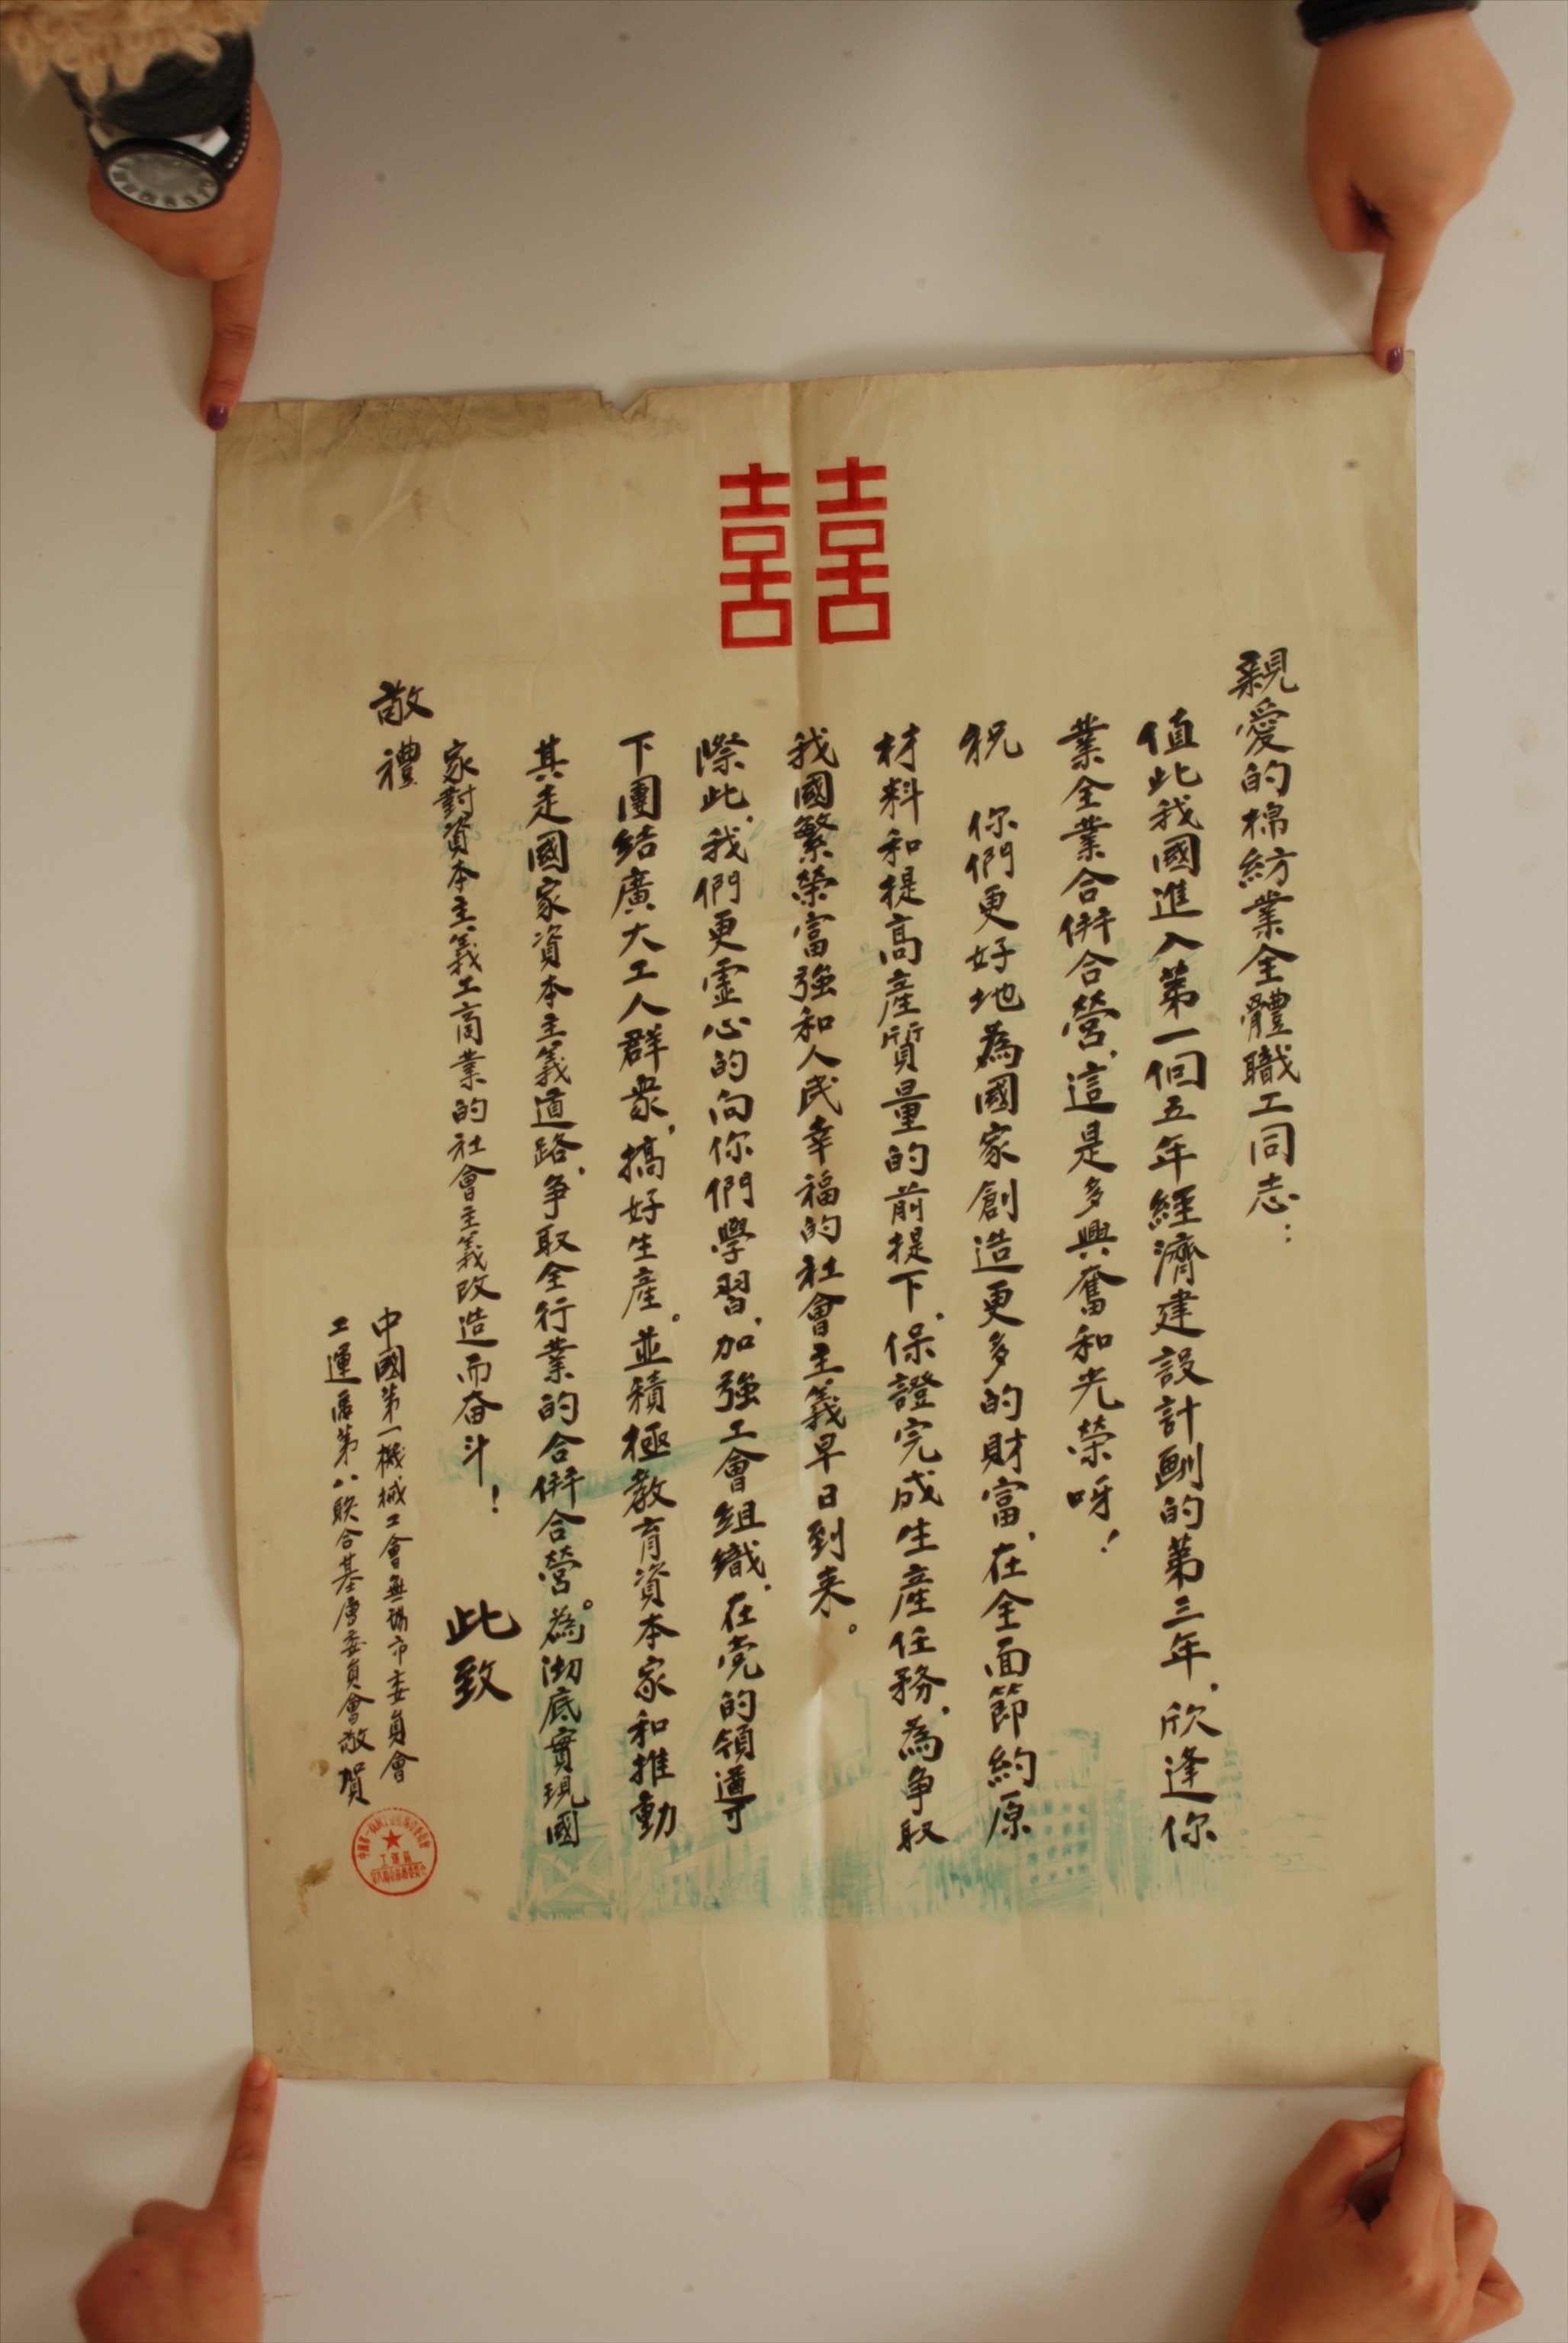 囍
親愛的棉紡業全體職工同志：
值此我國進入第一個五年經濟建設計劃的第三年，欣逢你
業全業合併合營，這是多興奮和光榮呀！
祝 你們更好地為國家創造更多的財富，在全面節約原
材料和提高產質量的前提下，保證完成生產任務，為爭取
我國繁榮富強和人民幸福的社會主義早日到来。
際此，我們更虛心的向你們學習，加強工會組織，在党的領導
下團結廣大工人群衆，搞好生產。並積極教育資本家和推動
其走國家資本主義道路，爭取全行業的合併合營。為沏底實現國
家對資本主義工商業的社會主義改造而奋斗！ 此致
敬禮
中國第一機械工會無錫市委員會
工運區第八聯合基層委員會敬賀